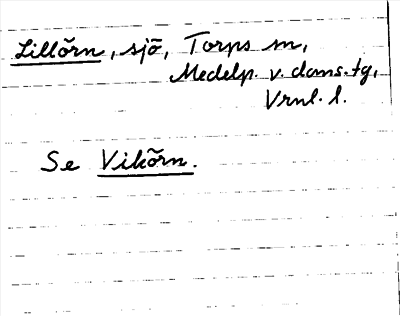 Lillörn, sjö, Torps sn,
Medelp. v. doms.tg,
Vrnl. l.
Se Vikörn.